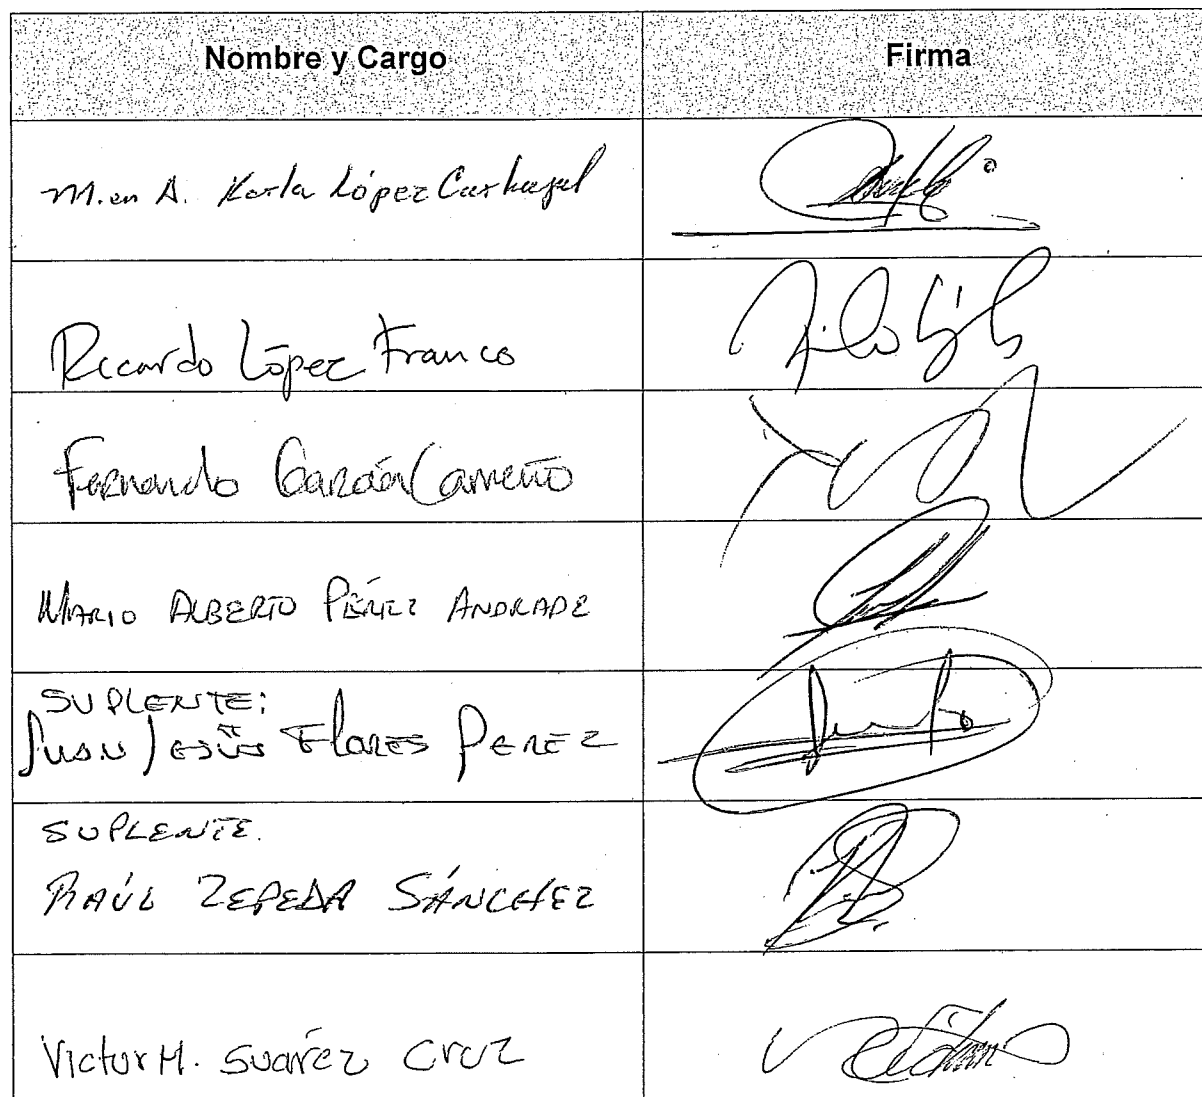 Nombre y Cargo
Firma
M. en A. Karla López Carbajal
Ricardo López Franco
Fernando García Carreño
MARIO ALBERTO PÉREZ ANDRADE
SUPLENTE:
JUAN JESÚS FLORES PEREZ
SUPLENTE.
RAÚL ZEPEDA SÁNCHEZ
Victor M. Suaréz Cruz